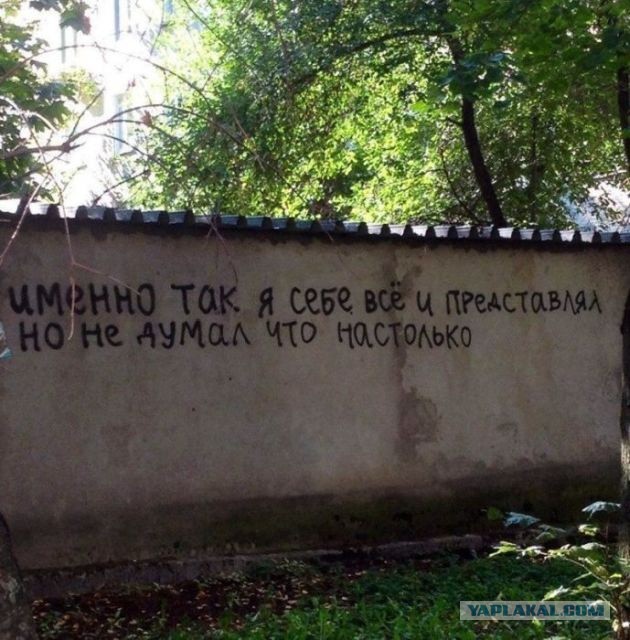 именно так я себе всё и представлял
но не думал что настолько
YAPLAKAL.COM